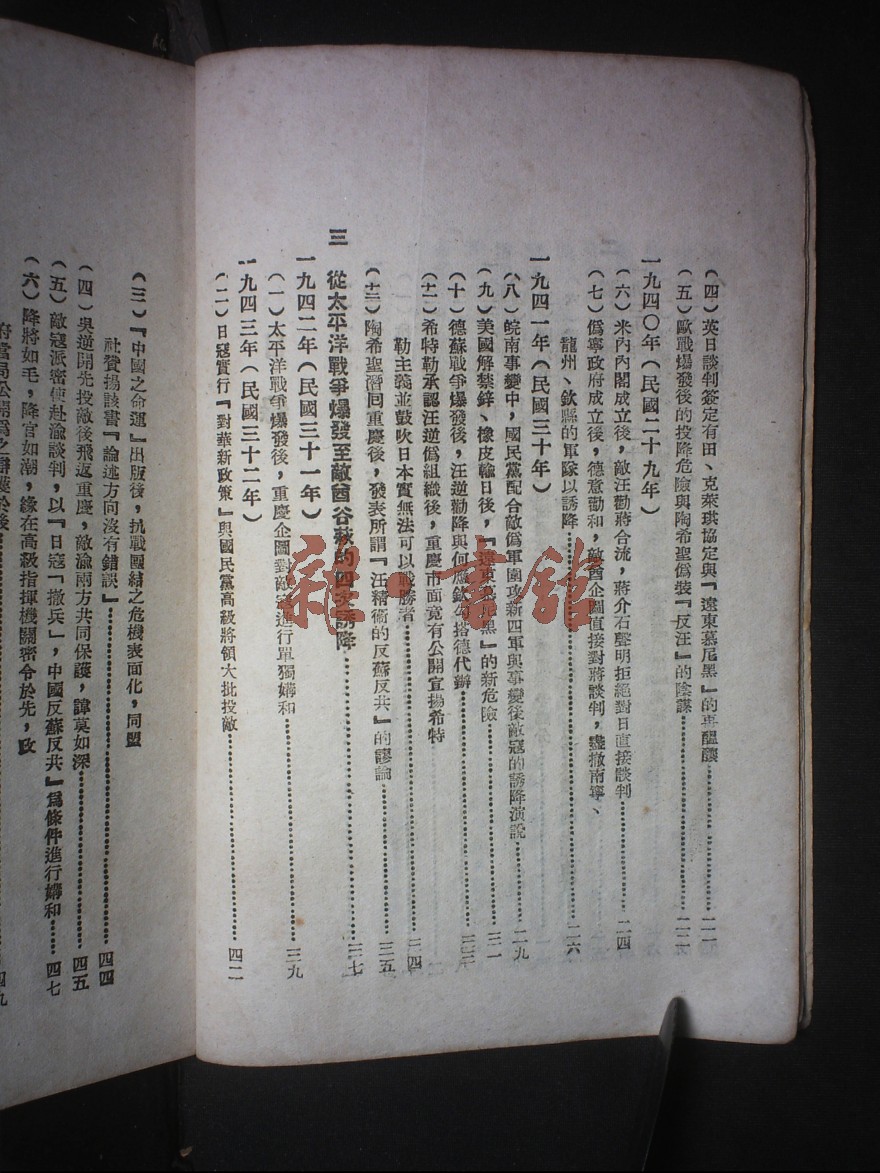 (四)英日談判簽定有田、克萊琪協定與『遠東慕尼黑』的再醞釀……二一
(五)歐戰爆發後的投降危險與陶希聖僞裝『反汪』的陰謀……二二
一九四〇年(民國二十九年)
(六)米內內閣成立後,敵汪勸蔣合流,蔣介石聲明拒絕對日直接談判……二四
(七)僞寧政府成立後,德意勸和,敵酋企圖直接對蔣談判,盡撤南寧、
龍州、欽縣的軍隊以誘降……二六
一九四一年(民國三十年)
(八)皖南事變中,國民黨配合敵僞軍圍攻新四軍與事變後敵寇的誘降演說……二九
(九)美國解禁鋅、橡皮輸日後,『遠東慕尼黑』的新危險……三一
(十)德蘇戰爭爆發後,汪逆勸降與何應欽勾搭德代辦……三三
(十一)希特勒承認汪逆僞組織後,重慶市面竟有公開宣揚希特
勒主義並鼓吹日本實無法可以戰勝者……三四
(十二)陶希聖潛回重慶後,發表所謂『汪精衛的反蘇反共』的謬論……三五
三 從太平洋戰爭爆發至敵酋谷萩的四次誘降……三七
一九四二年(民國三十一年)
(一)太平洋戰爭爆發後,重慶企圖對敵寇進行單獨媾和……三九
一九四三年(民國三十二年)
(二)日寇實行『對華新政策』與國民黨高級將領大批投敵……四二
(三)『中國之命運』出版後,抗戰團結之危機表面化,同盟
社贊揚該書『論述方向沒有錯誤』……四四
(四)吳逆開先投敵後飛返重慶,敵渝兩方共同保護,諱莫如深……四五
(五)敵寇派密使赴渝談判,以『日寇「撤兵」,中國反蘇反共』爲條件進行媾和……四七
(六)降將如毛,降官如潮,緣在高級指揮機關密令於先,政
府當局公開爲之辯護於後……四九
雜·書館